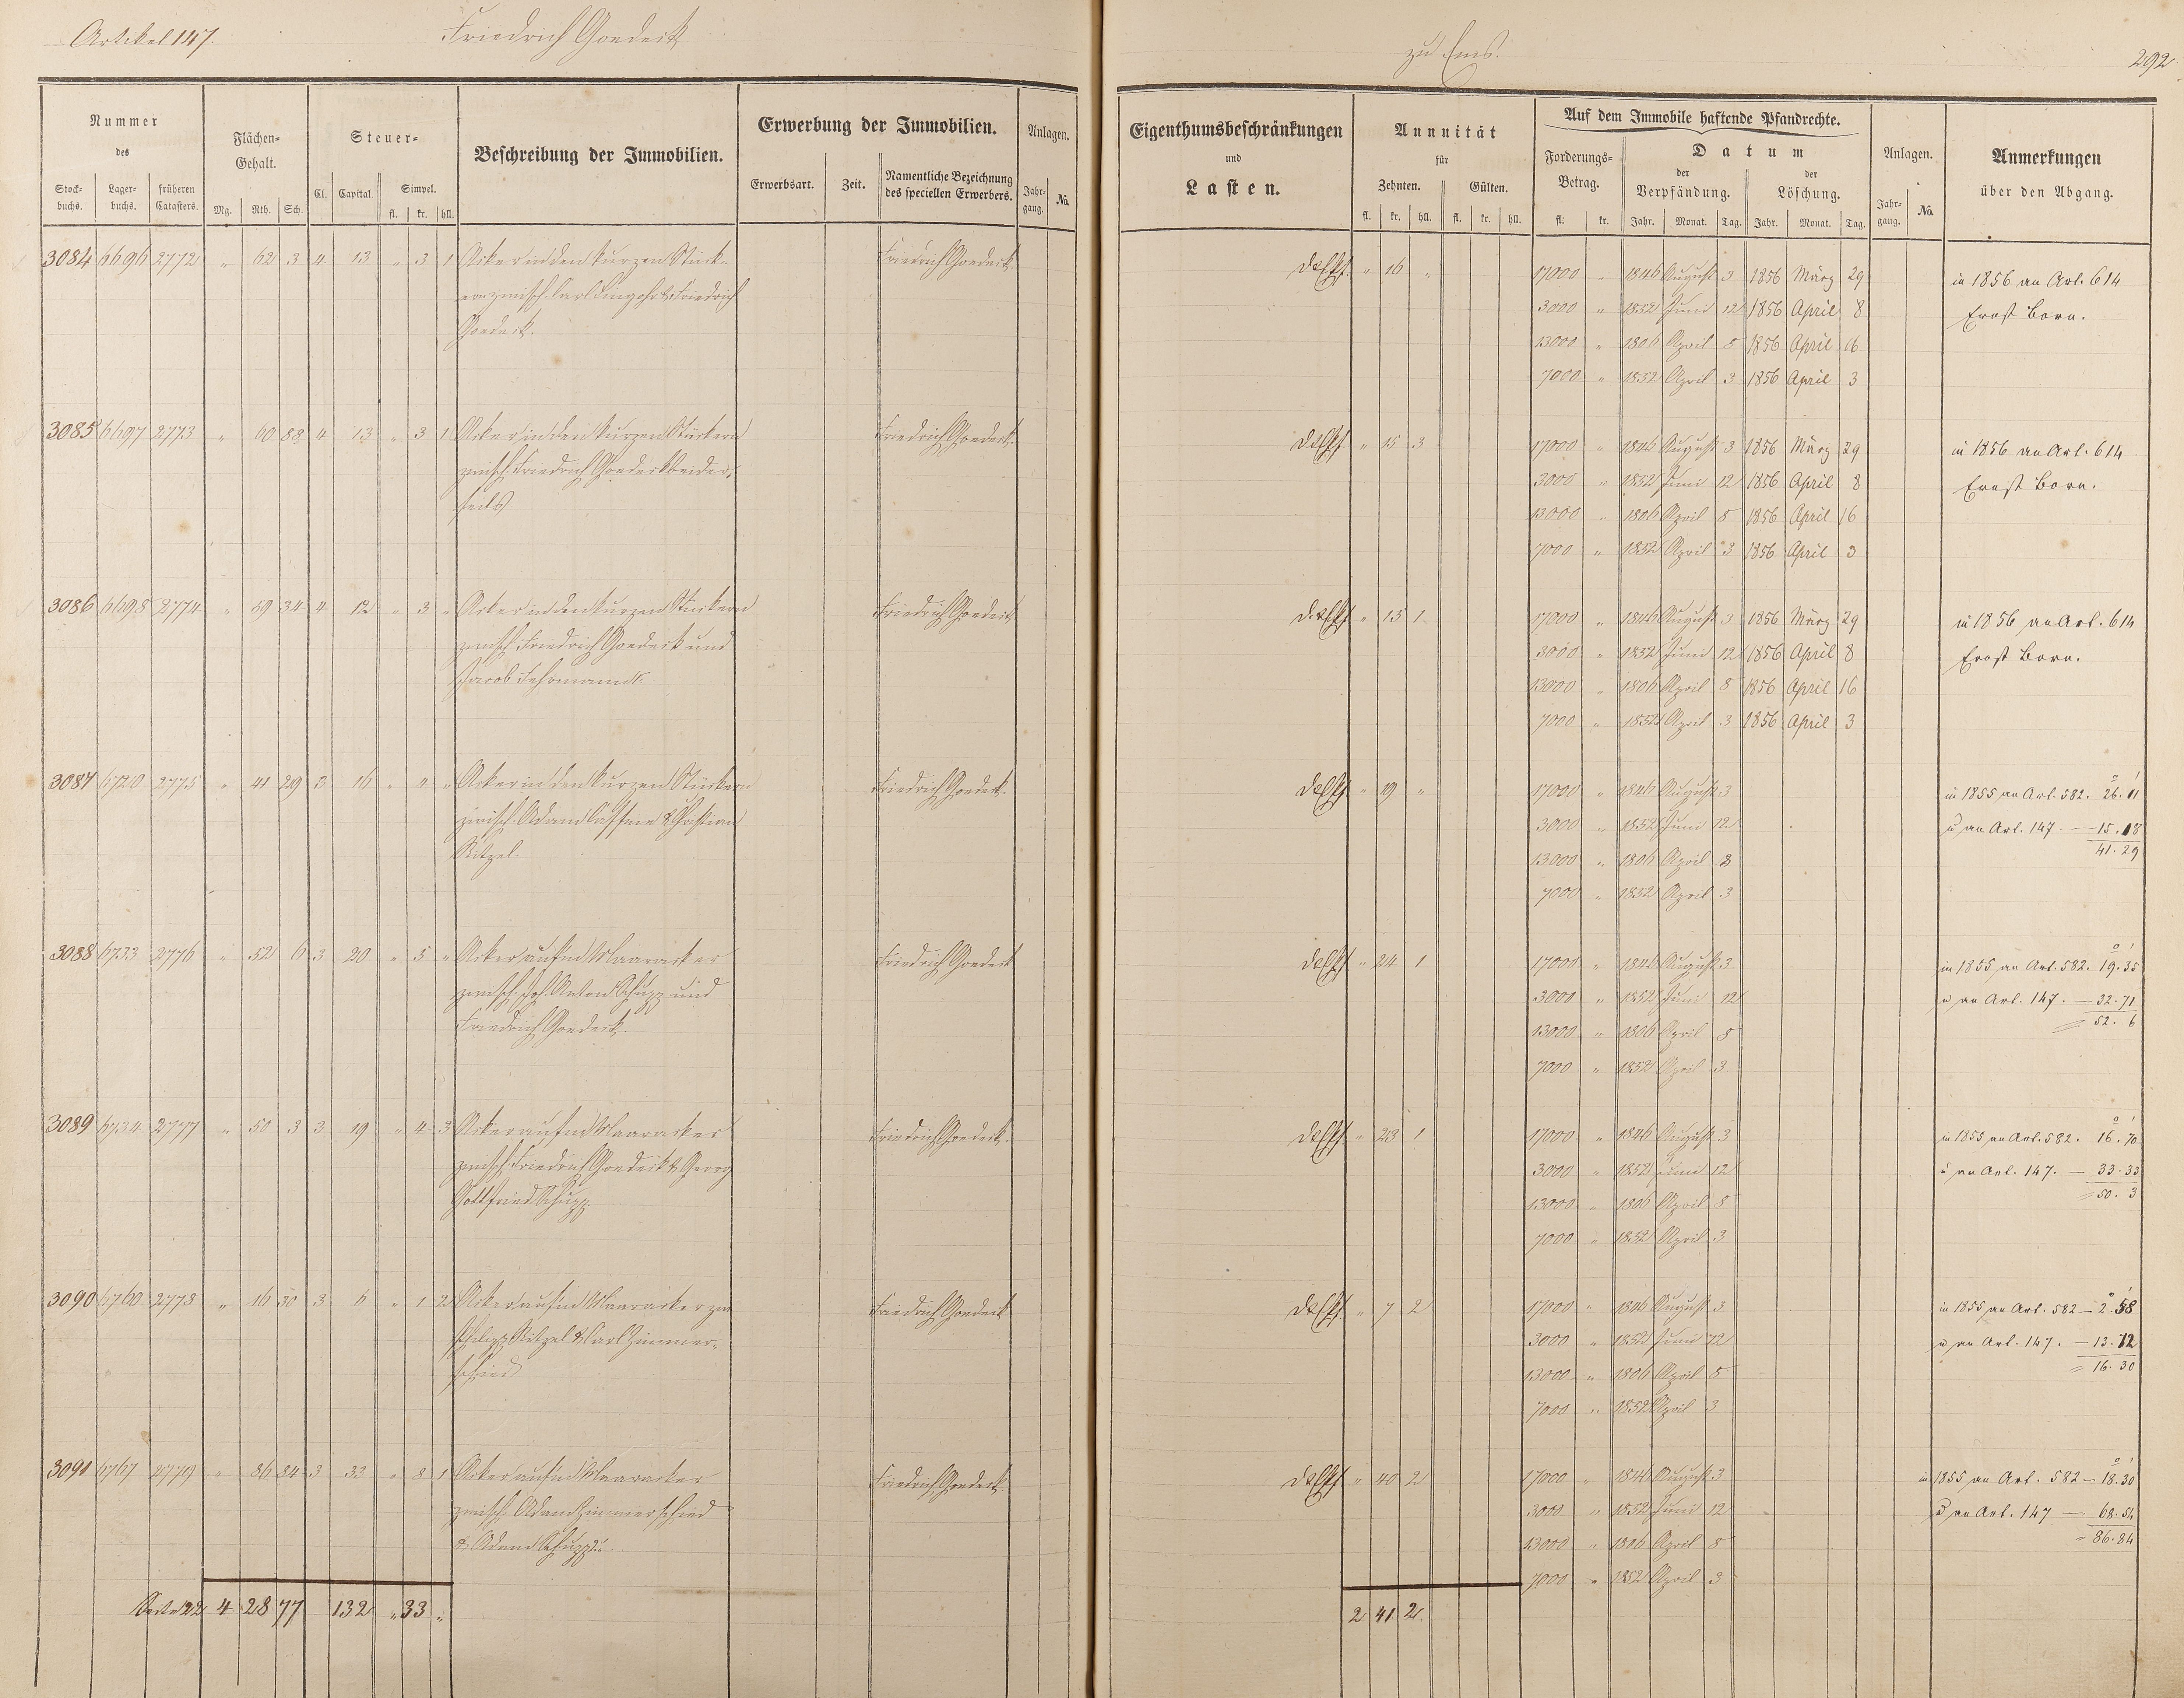 Artikel 147. Friedrich Goedeck zu Ems. 292
Nummer des
Stockbuchs. Lagerbuchs. früheren Catasters.
Flächen-Gehalt.
Mg. Rth. Sch.
Steuer-
Cl. Capital. Simpel.
fl. kr. hll.
Beschreibung der Immobilien.
Erwerbung der Immobilien.
Erwerbsart. Zeit. Namentliche Bezeichnung des speciellen Erwerbers.
Anlagen.
Jahrgang. No.
Eigenthumsbeschränkungen
und
Lasten.
Annuität
für
Zehnten. Gülten.
fl. kr. hll. fl. kr. hll.
Auf dem Immobile haftende Pfandrechte.
Forderungs-Betrag.
fl: kr.
Datum
der Verpfändung. der Löschung.
Jahr. Monat. Tag. Jahr. Monat. Tag.
Anlagen.
Jahrgang. No.
Anmerkungen
über den Abgang.
3084 6696 2772 " 62 3 4 13 " 3 1 Acker in den kurzen Stück- Friedrich Goedeck " 16 " 17000 " 1846 August 3 1856 März 29 in 1856 an Art. 614
ern zwisch. Carl & Friedrich 3000 " 1852 Juni 12 1856 April 8 Ernst Born.
Goedeck. 13000 " 1806 April 8 1856 April 16
7000 " 1852 April 3 1856 April 3
3085 6697 2773 " 60 88 4 13 " 3 1 Acker in den kurzen Stückern Friedrich Goedeck " 15 3 17000 " 1846 August 3 1856 März 29 in 1856 an Art. 614
zwisch. Friedrich Goedeck beider- 3000 " 1852 Juni 12 1856 April 8 Ernst Born.
seits 13000 " 1806 April 8 1856 April 16
7000 " 1852 April 3 1856 April 3
3086 6698 2774 " 59 34 4 12 " 3 " Acker in den kurzen Stückern Friedrich Goedeck " 15 1 17000 " 1846 August 3 1856 März 29 in 1856 an Art. 614
zwisch. Friedrich Goedeck und 3000 " 1852 Juni 12 1856 April 8 Ernst Born.
Jacob 13000 " 1806 April 8 1856 April 16
7000 " 1852 April 3 1856 April 3
3087 6720 2775 " 41 29 3 16 " 4 " Acker in den kurzen Stückern Friedrich Goedeck " 19 " 17000 " 1846 August 3 in 1855 an Art. 582. 26. 11
zwisch. Adam & 3000 " 1852 Juni 12 u an Art. 147. — 15. 18
13000 " 1806 April 8 41. 29
7000 " 1852 April 3
3088 6733 2776 " 52 6 3 20 " 5 " Acker auf'm Maaracker Friedrich Goedeck " 24 1 17000 " 1846 August 3 in 1855 an Art. 582. 19. 35
zwisch. Joh. Anton Schupp und 3000 " 1852 Juni 12 u an Art. 147. — 32. 71
Friedrich Goedeck. 13000 " 1806 April 8 52. 6
7000 " 1852 April 3
3089 6734 2777 " 50 3 3 19 " 4 3 Acker auf'm Maaracker Friedrich Goedeck " 23 1 17000 " 1846 August 3 in 1855 an Art. 582. 16. 70
zwisch. Friedrich Goedeck & Georg 3000 " 1852 Juni 12 u an Art. 147. — 33. 33
Gottfried Schupp. 13000 " 1806 April 8 50. 3
7000 " 1852 April 3
3090 6760 2778 " 16 30 3 6 " 1 2 Acker auf'm Maaracker zw Friedrich Goedeck " 7 2 17000 " 1846 August 3 in 1855 an Art. 582 — 2. 58
Philipp & Carl Zimmer- 3000 " 1852 Juni 12 u an Art. 147. — 13. 72
schied 13000 " 1806 April 8 16. 30
7000 " 1852 April 3
3091 6767 2779 " 86 84 3 33 " 8 1 Acker auf'm Maaracker Friedrich Goedeck " 40 2 17000 " 1846 August 3 in 1855 an Art. 582 — 18. 30
zwisch. Adam Zimmerschied 3000 " 1852 Juni 12 u an Art. 147 — 68. 54
& Adam Schupp 13000 " 1806 April 8 86. 84
7000 " 1852 April 3
Seite 22 4 28 77 132 " 33 " 2 41 2